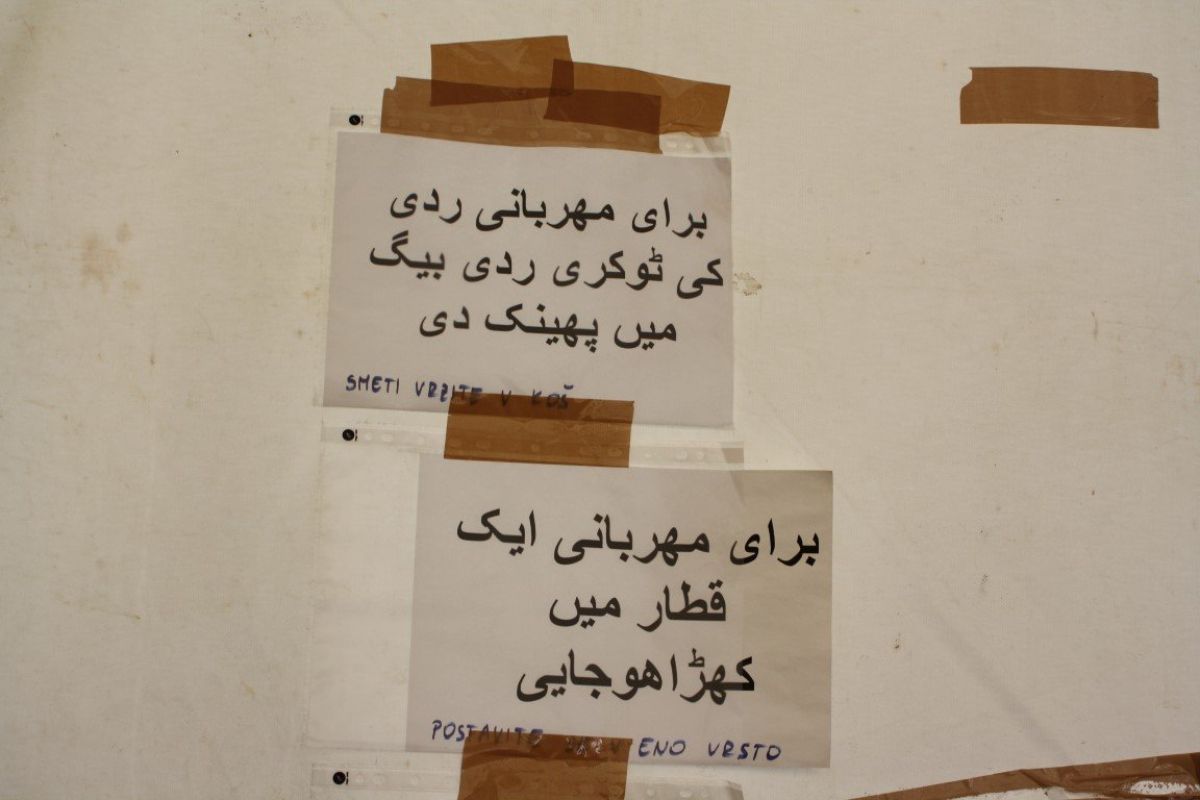 برای مهربانی ردی
کی ٹوکری ردی بیگ
میں پھینک دی
SMETI VRZITE V KOŠ
برای مهربانی ایک
قطار میں
کھڑاهوجایی
POSTAVITE SE V ENO VRSTO